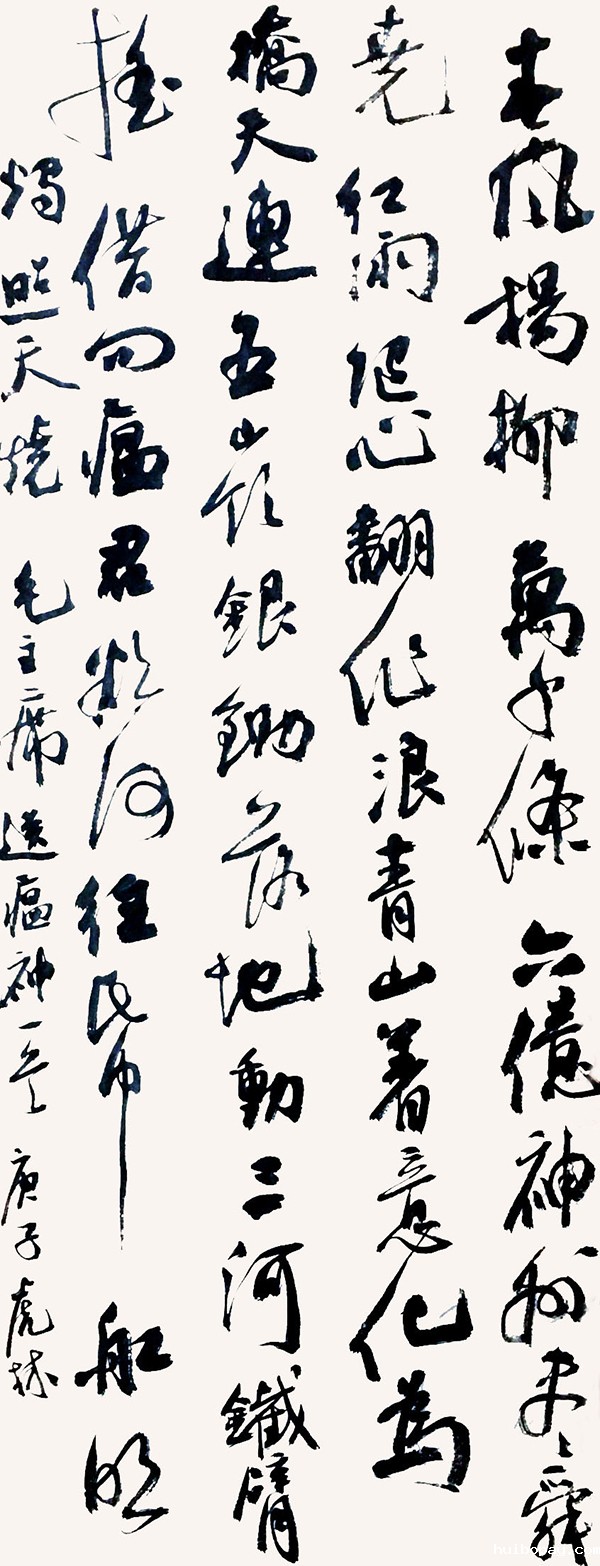 春風楊柳萬千條六億神州尽舜
堯紅雨随心翻作浪青山着意化為
橋天連五嶺銀鋤落地動三河鐵臂
摇借问瘟君欲何往帋船明
燭照天燒毛主席送瘟神一首庚子虎林